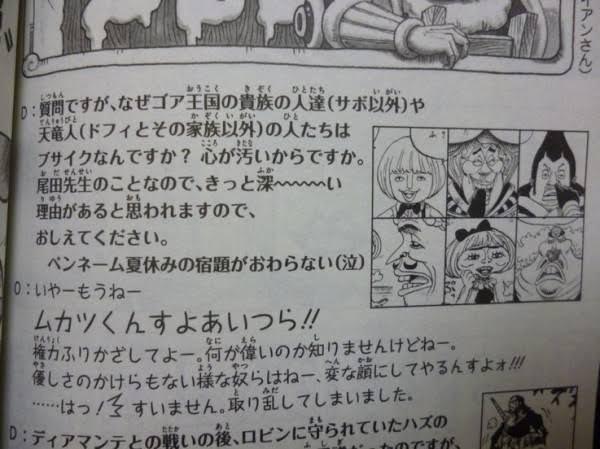 イアンさん)
D:質問ですが、なぜゴア王国の貴族の人達(サボ以外)や
天竜人(ドフィとその家族以外)の人たちは
ブサイクなんですか? 心が汚いからですか。
尾田先生のことなので、きっと深〜〜〜〜い
理由があると思われますので、
おしえてください。
ペンネーム夏休みの宿題がおわらない(泣)
O:いやーもうねー
ムカツくんすよあいつら!!
権力ふりかざしてよー。何が偉いのか知りませんけどねー。
優しさのかけらもない様な奴らはねー、変な顔にしてやるんすよォ!!!
……はっ!すいません。取り乱してしまいました。
D:ディアマンテとの戦いの後、ロビンに守られていたハズの